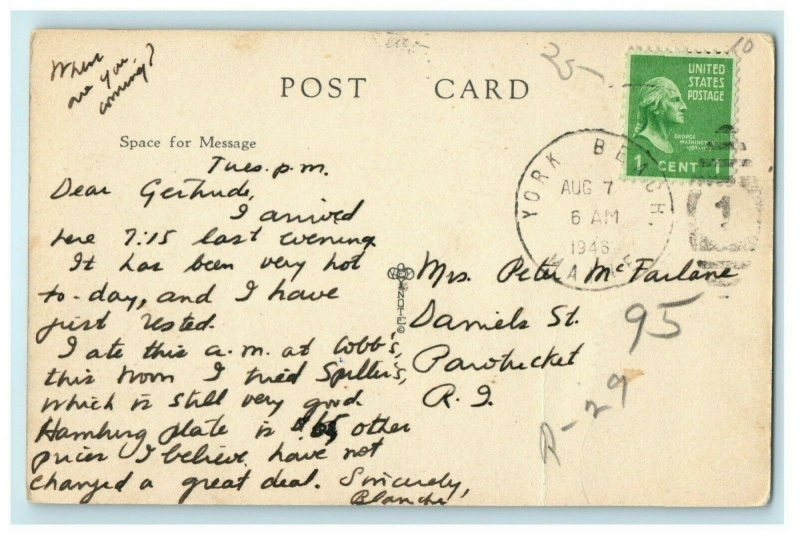 When
are you
coming?
POST CARD
Space for Message
Tues. p.m.
Dear Gertrude,
I arrived
here 7:15 last evening
It has been very hot
to-day, and I have
just rested.
I ate this a.m. at Cobb's,
this noon I tried Spiller's,
which is still very good.
Hamburg plate is 65 other
prices I believe have not
changed a great deal. Sincerely,
Blanche
UNITED
STATES
POSTAGE
GEORGE
WASHINGTON
1 CENT 1
YORK BEACH.
AUG 7
6 AM
1946
MAINE
1
Mrs. Peter McFarlane
Daniels St.
Pawtucket
R.I.
95
R-29
10